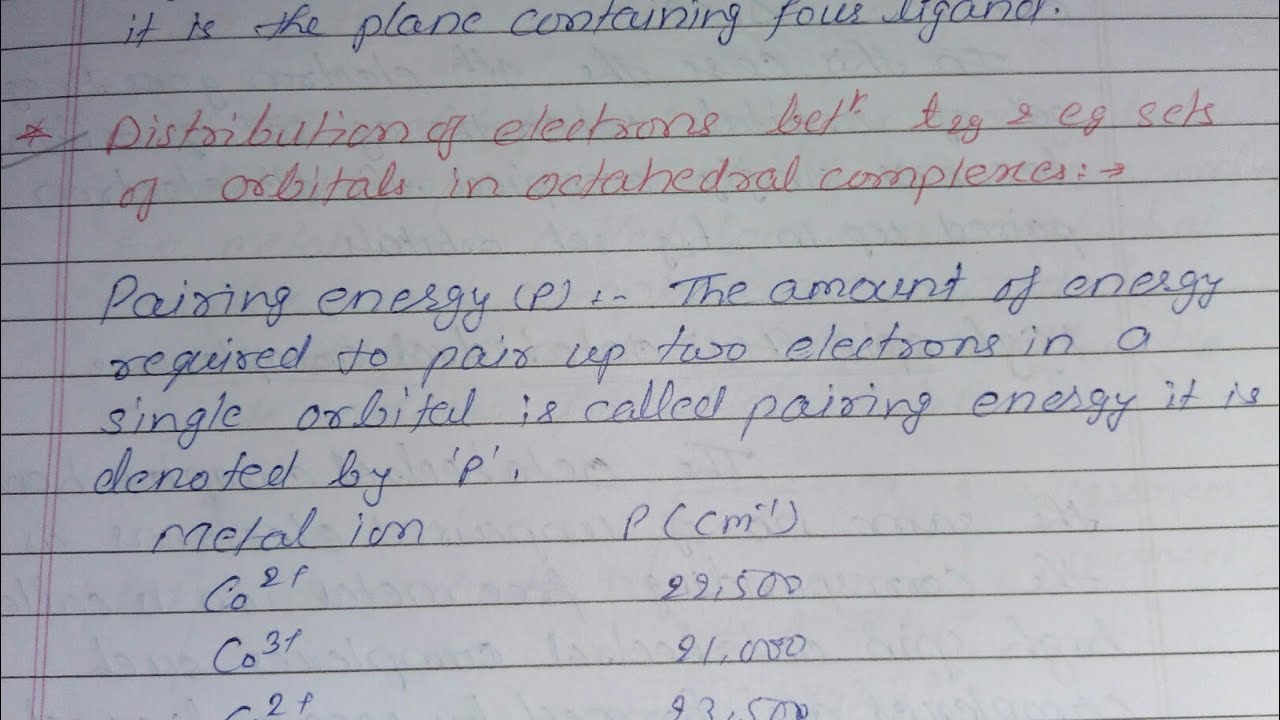 it is the plane containing four ligand.
* Distribution of electrons betn t2g & eg sets
of orbitals in octahedral complexes:→
Pairing energy (P) :- The amount of energy
required to pair up two electrons in a
single orbital is called pairing energy it is
denoted by 'P'.
Metal ion P (cm-1)
Co2+ 22,500
Co3+ 21,000
2+ 23,500